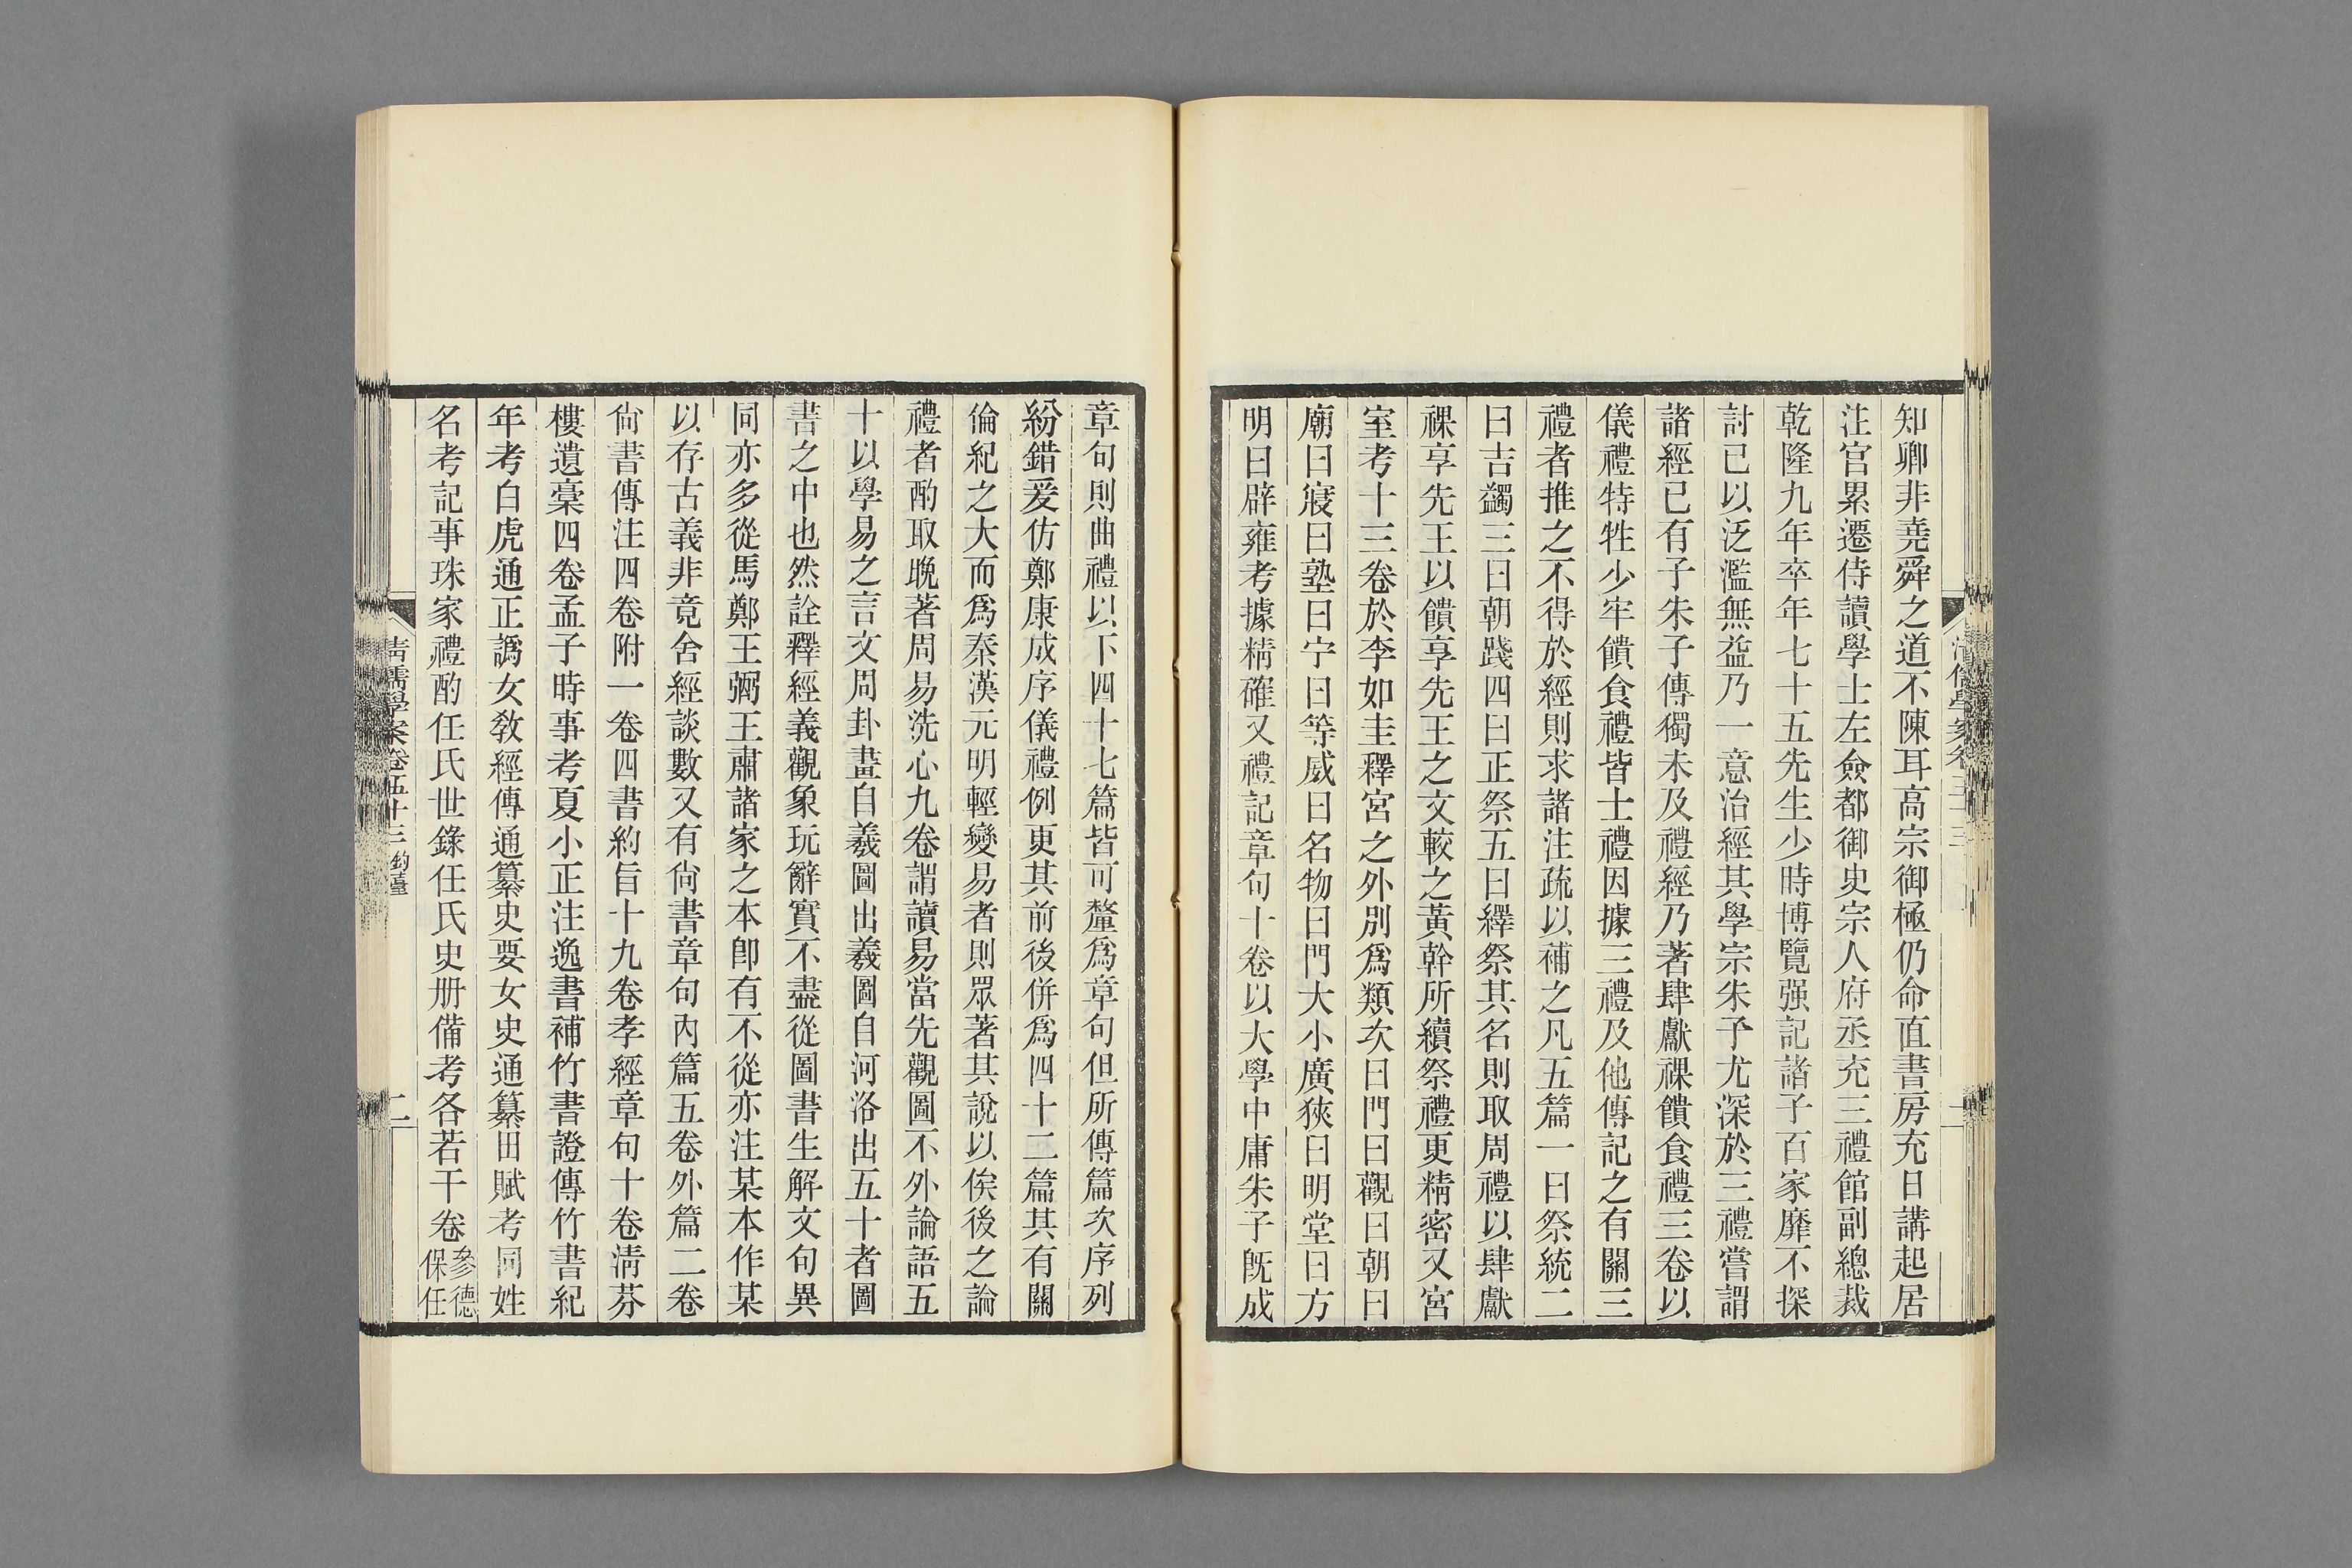 知卿非堯舜之道不陳耳高宗御極仍命直書房充日講起居
注官累遷侍讀學士左僉都御史宗人府丞充三禮館副總裁
乾隆九年卒年七十五先生少時博覽强記諸子百家靡不探
討已以泛濫無益乃一意治經其學宗朱子尤深於三禮嘗謂
諸經已有子朱子傳獨未及禮經乃著肆獻祼饋食禮三卷以
儀禮特牲少牢饋食禮皆士禮因據三禮及他傳記之有關三
禮者推之不得於經則求諸注疏以補之凡五篇一曰祭統二
曰吉蠲三曰朝踐四曰正祭五曰繹祭其名則取周禮以肆獻
祼享先王以饋享先王之文較之黃幹所續祭禮更精密又宮
室考十三卷於李如圭釋宮之外別爲類次曰門曰觀曰朝曰
廟曰寢曰塾曰宁曰等威曰名物曰門大小廣狹曰明堂曰方
明曰辟雍考據精確又禮記章句十卷以大學中庸朱子旣成
章句則曲禮以下四十七篇皆可釐爲章句但所傳篇次序列
紛錯爰仿鄭康成序儀禮例更其前後併爲四十二篇其有關
倫紀之大而爲秦漢元明輕變易者則眾著其說以俟後之論
禮者酌取晚著周易洗心九卷謂讀易當先觀圖不外論語五
十以學易之言文周卦畫自羲圖出羲圖自河洛出五十者圖
書之中也然詮釋經義觀象玩辭實不盡從圖書生解文句異
同亦多從馬鄭王弼王肅諸家之本卽有不從亦注某本作某
以存古義非竟舍經談數又有尙書章句內篇五卷外篇二卷
尙書傳注四卷附一卷四書約旨十九卷孝經章句十卷淸芬
樓遺稾四卷孟子時事考夏小正注逸書補竹書證傳竹書紀
年考白虎通正譌女敎經傳通纂史要女史通纂田賦考同姓
名考記事珠家禮酌任氏世錄任氏史册備考各若干卷參德
保任
淸儒學案卷五十三 釣臺
二